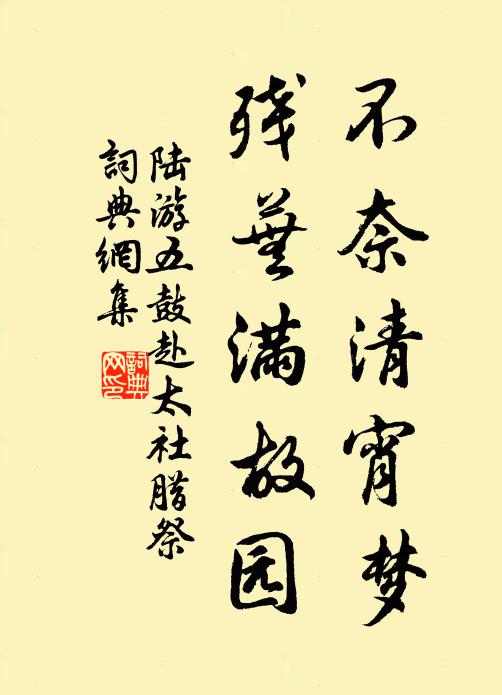 不奈清宵梦
残芜满故园
陆游五鼓赴太社腊祭
詞典網集
詞典網印